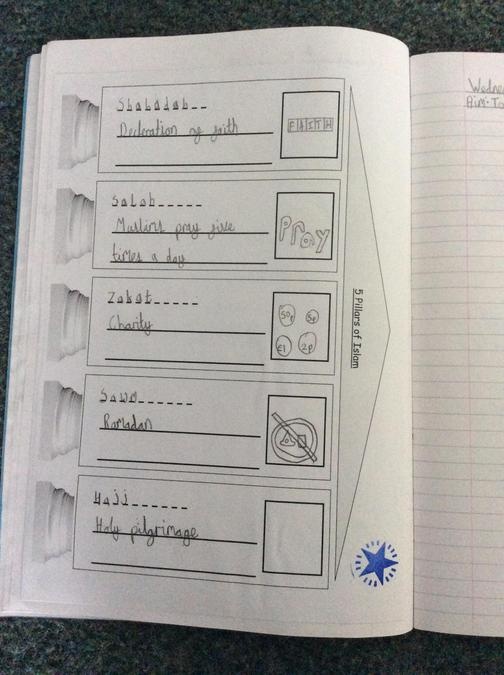 Shahadah
Declaration of faith
FAITH
Salah
Muslims pray five
times a day
Pray
Zakat
Charity
50p
5p
£1
2p
Sawm
Ramadan
Hajj
Holy pilgrimage
5 Pillars of Islam
Wedne
Aim: To